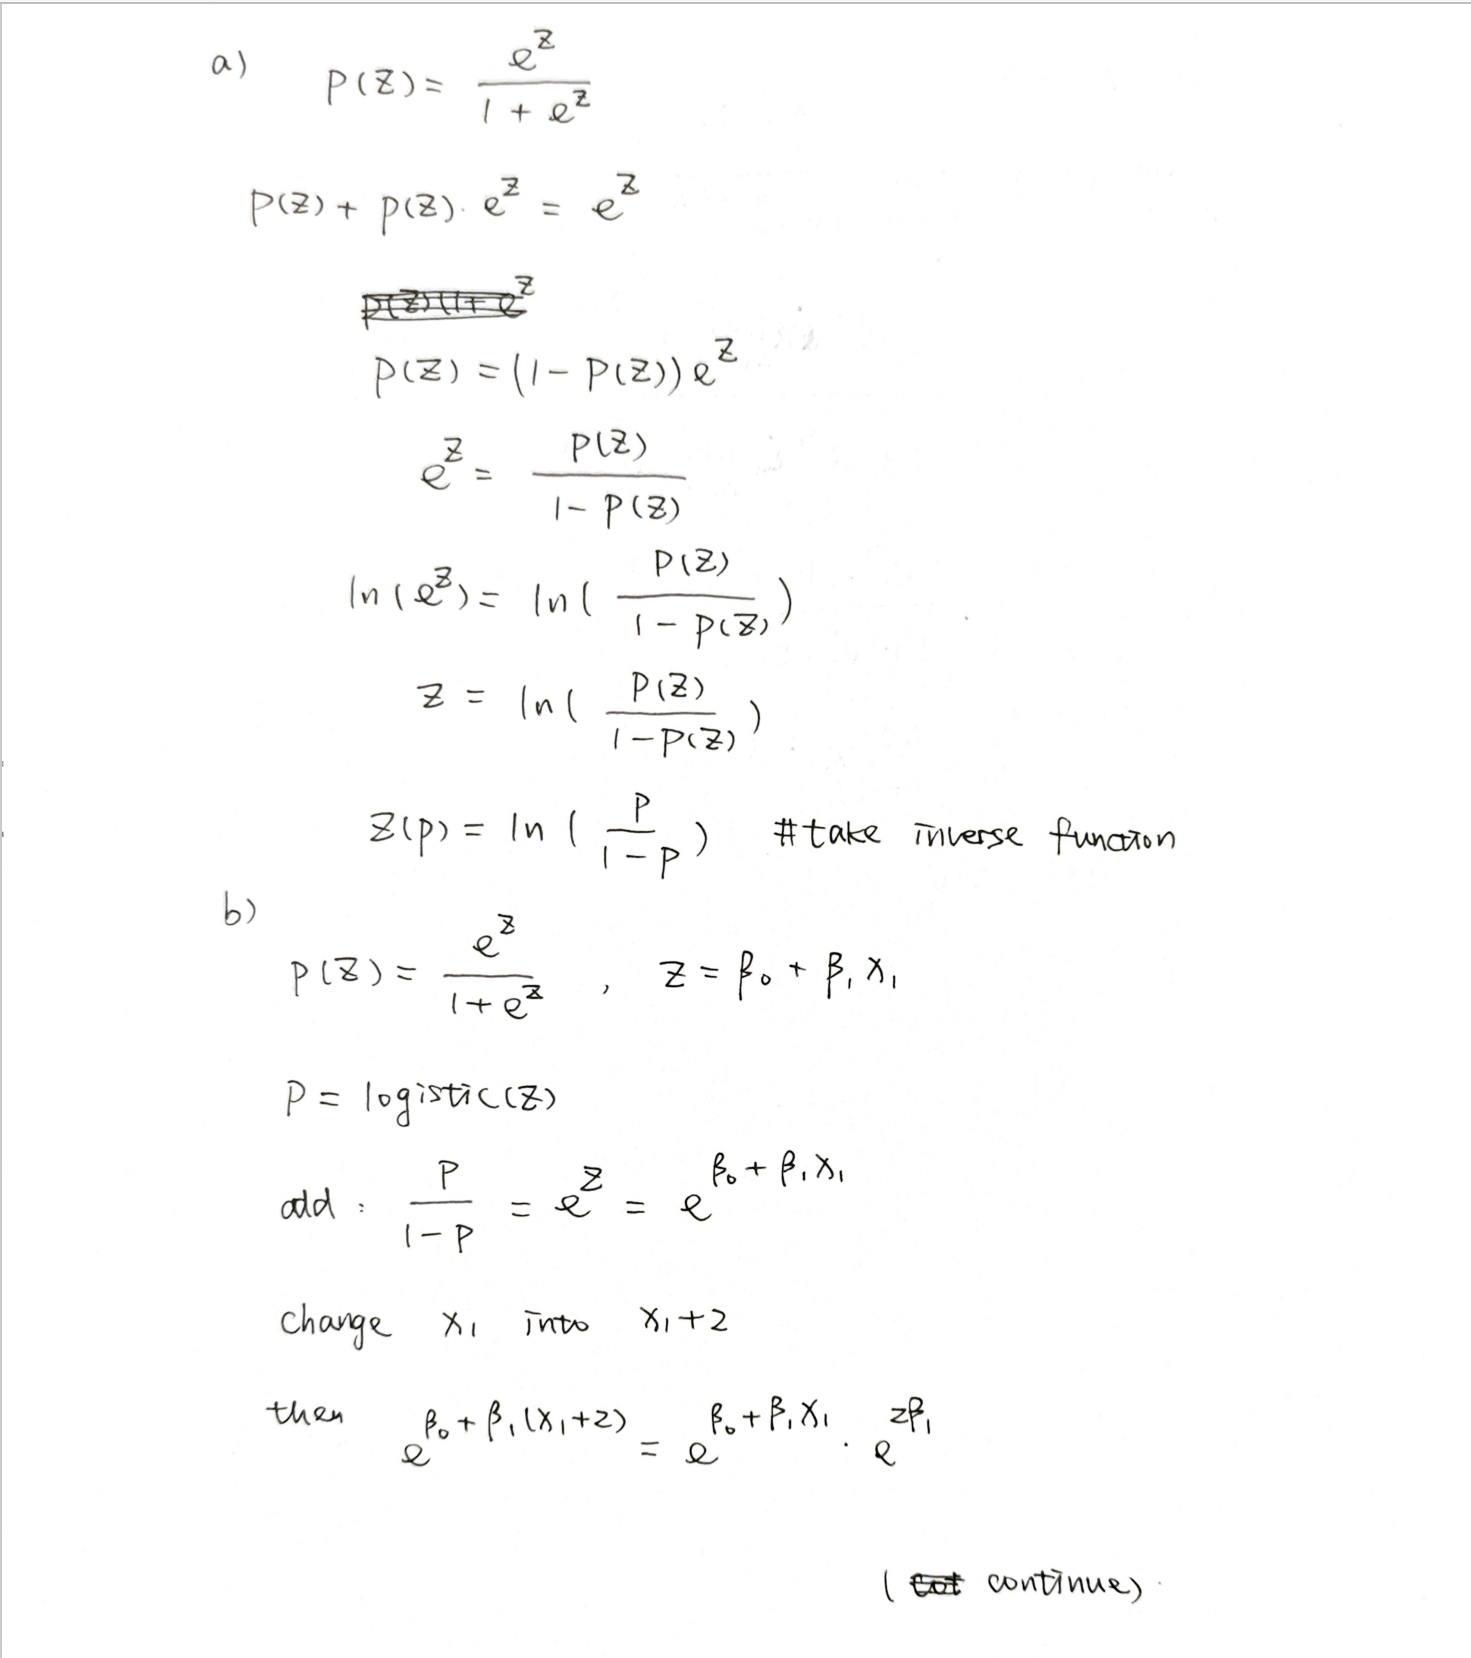 a) P(Z) = e^Z / (1 + e^Z)
P(Z) + P(Z) · e^Z = e^Z
P(Z)(1 + e^Z
P(Z) = (1 - P(Z)) e^Z
e^Z = P(Z) / (1 - P(Z))
ln(e^Z) = ln( P(Z) / (1 - P(Z)) )
Z = ln( P(Z) / (1 - P(Z)) )
Z(p) = ln( P / (1 - P) ) #take inverse function
b)
P(Z) = e^Z / (1 + e^Z) , Z = β₀ + β₁X₁
P = logistic(Z)
odd : P / (1 - P) = e^Z = e^(β₀ + β₁X₁)
change X₁ into X₁+2
then e^(β₀ + β₁(X₁+2)) = e^(β₀ + β₁X₁) · e^(2β₁)
( continue)